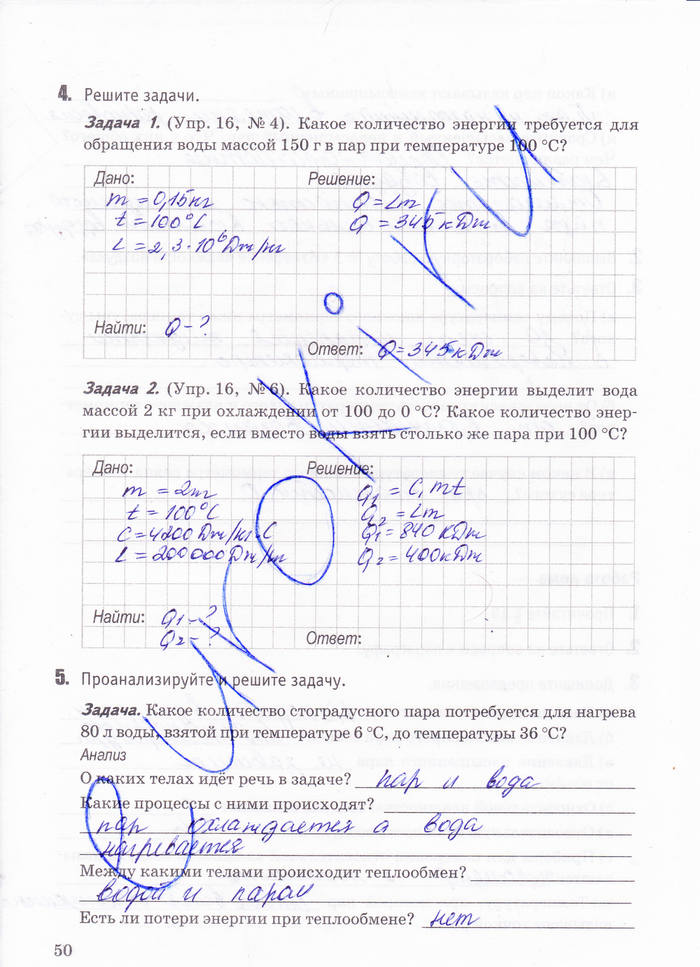 4. Решите задачи.
Задача 1. (Упр. 16, № 4). Какое количество энергии требуется для
обращения воды массой 150 г в пар при температуре 100 °С?
Дано: Решение:
m = 0,15кг Q = Lm
t = 100°C Q = 345 кДж
L = 2,3·10⁶Дж/кг
Найти: Q - ?
Ответ: Q = 345 кДж
Задача 2. (Упр. 16, № 6). Какое количество энергии выделит вода
массой 2 кг при охлаждении от 100 до 0 °С? Какое количество энер-
гии выделится, если вместо воды взять столько же пара при 100 °С?
Дано: Решение:
m = 2кг Q₁ = C₁mt
t = 100°C Q₂ = Lm
C = 4200 Дж/кг·С Q₁ = 840 кДж
L = 200000 Дж/кг Q₂ = 400 кДж
Найти: Q₁ - ?
Q₂ - ?
Ответ:
5. Проанализируйте и решите задачу.
Задача. Какое количество стоградусного пара потребуется для нагрева
80 л воды, взятой при температуре 6 °С, до температуры 36 °С?
Анализ
О каких телах идёт речь в задаче? пар и вода
Какие процессы с ними происходят?
пар охлаждается а вода
нагревается
Между какими телами происходит теплообмен?
водой и паром
Есть ли потери энергии при теплообмене? нет
50
UroKi.RU